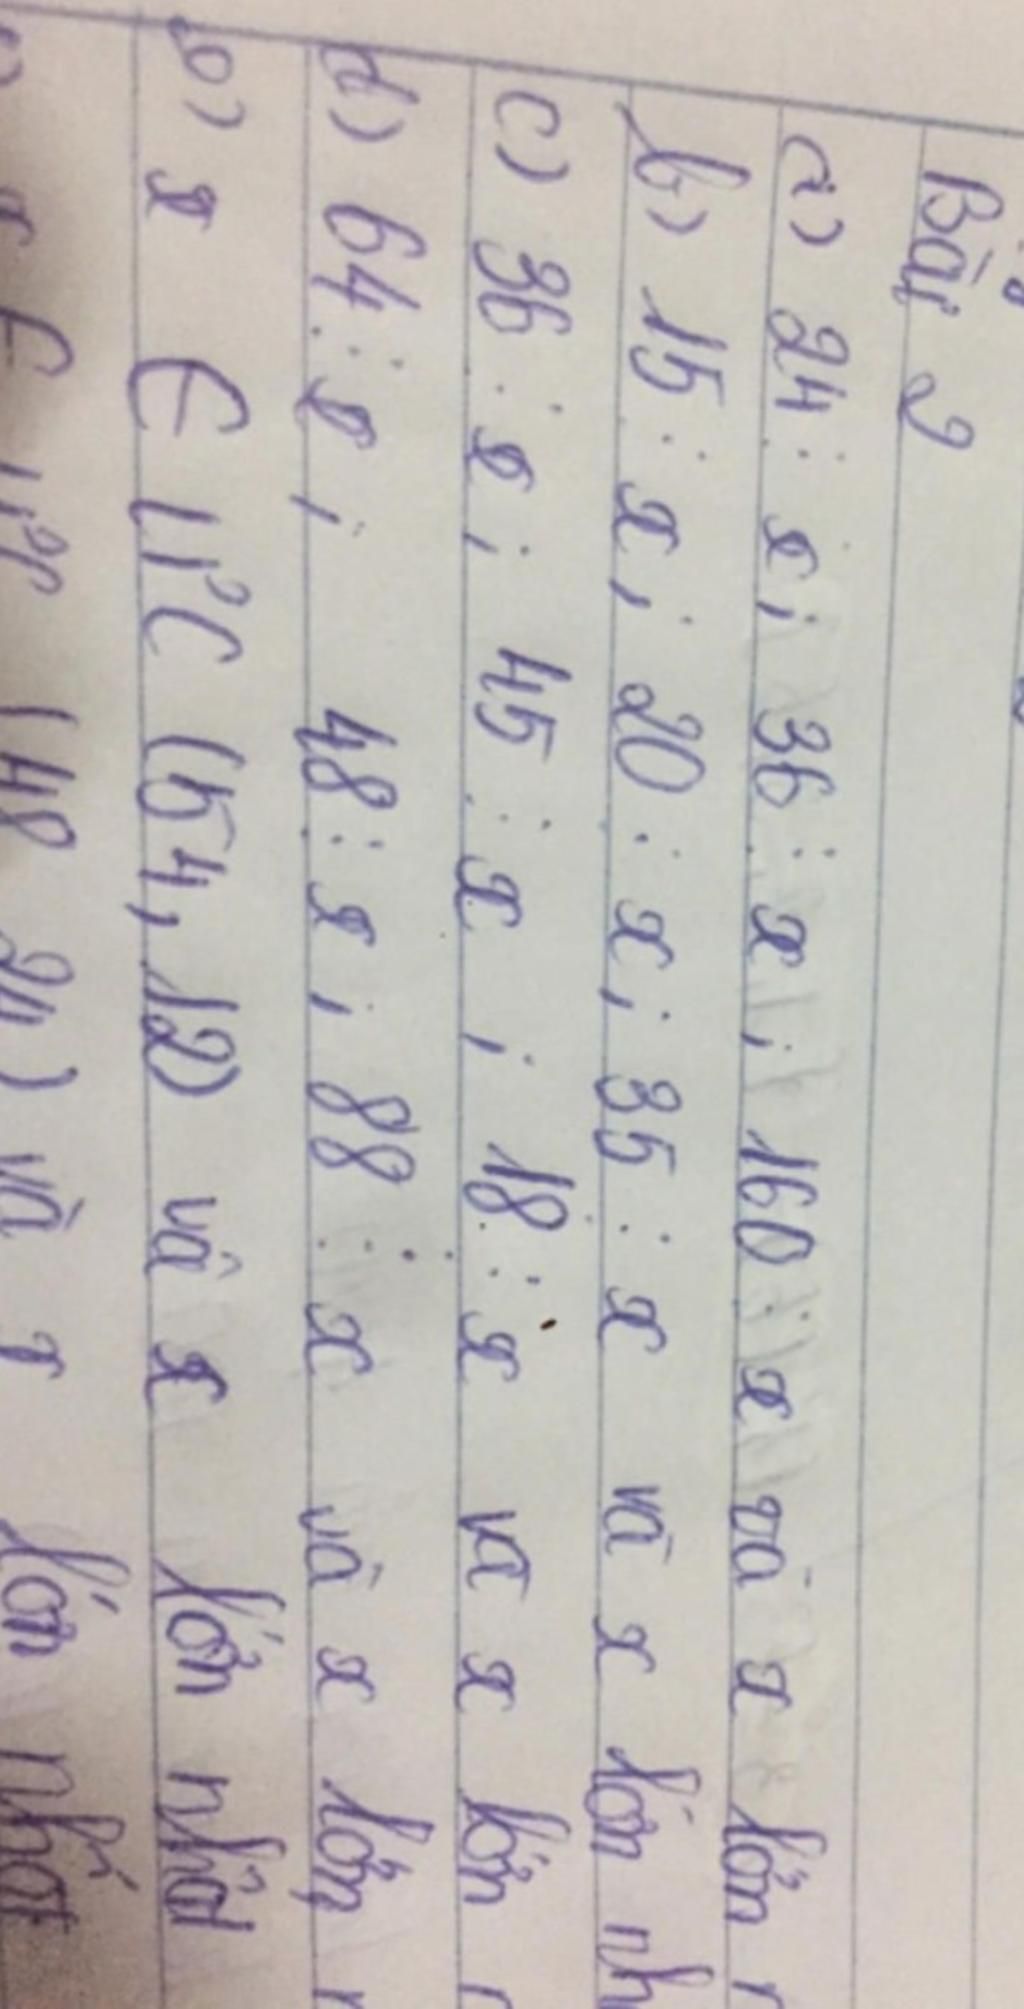 Bài 2
a) 24 ⋮ x ; 36 ⋮ x ; 160 ⋮ x và x lớn
b) 15 ⋮ x ; 20 ⋮ x ; 35 ⋮ x và x lớn nh
c) 36 ⋮ x ; 45 ⋮ x ; 18 ⋮ x và x lớn
d) 64 ⋮ x ; 48 ⋮ x ; 88 ⋮ x và x lớn
e) x ∈ ƯC (54, 12) và x lớn nhất
x ∈ ƯC (48 24) và x lớn nhất